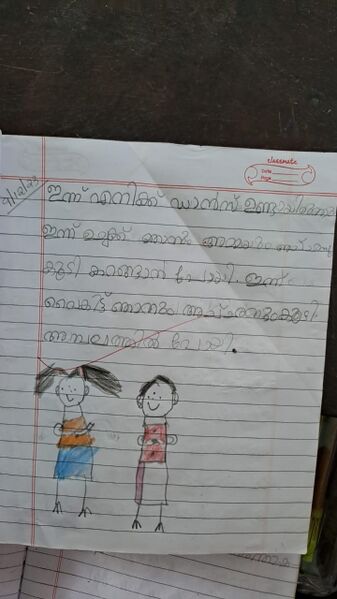 classmate
Date
Page
9/12/23
ഇന്ന് എനിക്ക് ഡാൻസ് ഉണ്ടായിരുന്നു
ഇന്ന് ഉച്ചക്ക് ഞാനും അമ്മയും
കൂടി കറങ്ങാൻ പോയി. ഇന്ന്
വൈകിട്ട് ഞാനും അച്ഛനുംകൂടി
അമ്പലത്തിൽ പോയി.